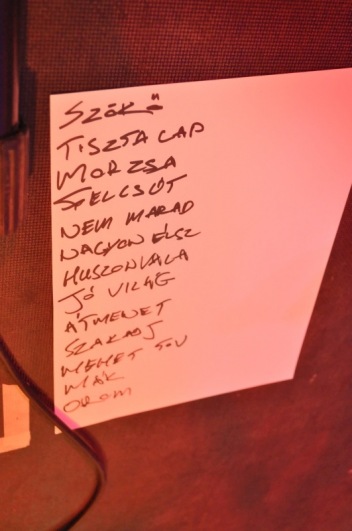 SZÖKŐ
TISZTA LAP
MORZSA
FELCSÚT
NEM MARAD
NAGYON ÉLSZ
HUSZONVALA
JÓ VILÁG
ÁTMENET
SZAKADJ
MEHET TOV
MÁK
OROM